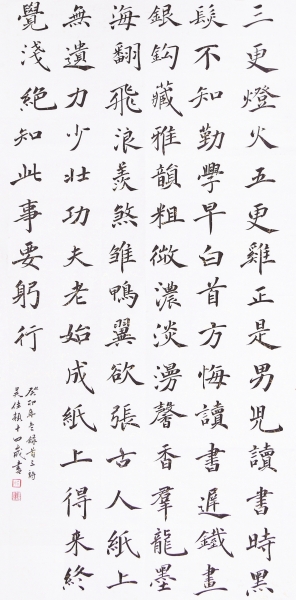 三更燈火五更雞正是男兒讀書時黑
髮不知勤學早白首方悔讀書遲鐵畫
銀鈎藏雅韻粗微濃淡漫馨香羣龍墨
海翻飛浪羨煞雛鴨翼欲張古人紙上
無遺力少壯功夫老始成紙上得來終
覺淺絕知此事要躬行
癸卯年
吳佳穎十四歲書